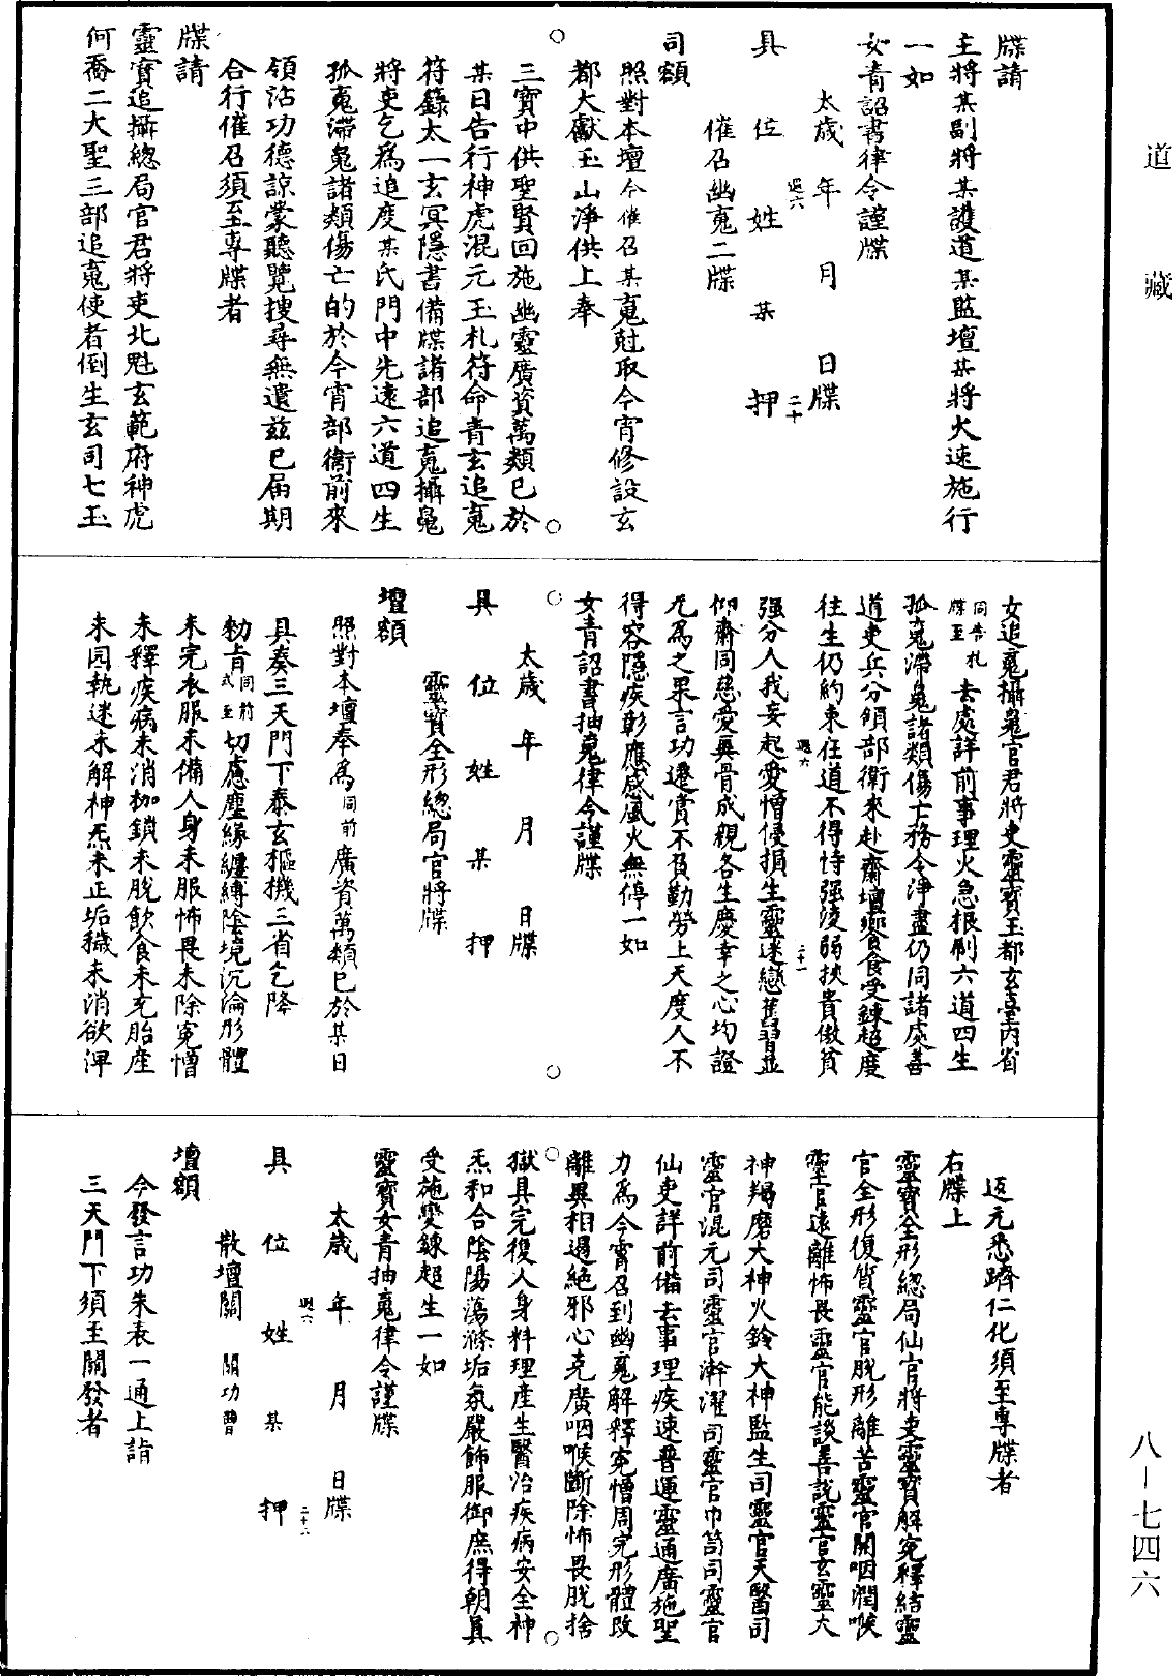 道藏
牒請
主將某副將某護道某監壇某將火速施行
一如
女青詔書律令謹牒
太歲年月日牒
具位姓某押
催召幽䰟二牒
司額
照對本壇今催召某䰟尅取今宵修設玄
都大獻玉山淨供上奉
三寶中供聖賢回施幽靈廣資萬類已於
某日告行神虎混元玉札符命青玄追䰟
符籙太一玄冥隱書備牒諸部追䰟攝鬼
將吏乞爲追度某氏門中先遠六道四生
孤䰟滯鬼諸類傷亡的於今宵部衛前來
領沾功德諒蒙聽覽搜尋無遺茲已届期
合行催召須至專牒者
牒請
靈寶追攝總局官君將吏北魁玄範府神虎
何喬二大聖三部追䰟使者倒生玄司七玉
女追䰟攝鬼官君將吏靈寶玉都玄臺內省
同告札牒至去處詳前事理火急根刷六道四生
孤䰟滯鬼諸類傷亡務令淨盡仍同諸處善
道吏兵分領部衛來赴齋壇饗食受鍊超度
往生仍約束在道不得恃强淩弱挾貴傲貧
强分人我妄起愛憎侵損生靈迷戀舊習並
仰齋同慈愛異骨成親各生慶幸之心均證
无爲之果言功遷賞不負勤勞上天度人不
得容隱疾彰應感風火無停一如
女青詔書抽䰟律令謹牒
太歲年月日牒
具位姓某押
靈寶全形總局官將牒
壇額
照對本壇奉爲同前廣資萬類已於某日
具奏三天門下泰玄樞機三省乞降
勑旨同前式至切慮塵緣纏縛陰境沉淪形體
未完衣服未備人身未服怖畏未除寃憎
未釋疾病未消枷鎖未脫飲食未充胎産
未圓執迷未解神炁未正垢穢未消欲俾
返元悉躋仁化須至專牒者
右牒上
靈寶全形總局仙官將吏靈寶解寃釋結靈
官全形復質靈官脫形離苦靈官開咽潤喉
靈官遠離怖畏靈官能談善說靈官玄靈大
神羯磨大神火鈴大神監生司靈官天醫司
靈官混元司靈官澣濯司靈官巾笥司靈官
仙吏詳前備去事理疾速普運靈通廣施聖
力爲今宵召到幽䰟解釋寃憎周完形體改
離異相過絕邪心克廣咽喉斷除怖畏脫捨
獄具完復人身料理産生醫治疾病安全神
炁和合陰陽蕩滌垢氛嚴飾服御庶得朝眞
受施變鍊超生一如
靈寶女青抽䰟律令謹牒
太歲年月日牒
具位姓某押
散壇關 關功曹
壇額
今發言功朱表一通上詣
三天門下須至關發者
八—七四六